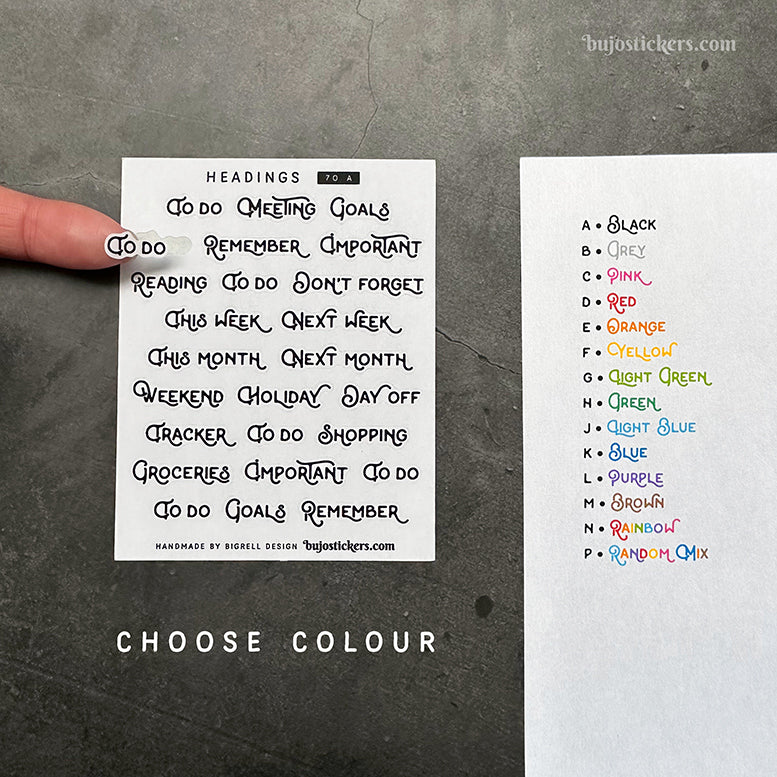 bujostickers.com
HEADINGS 70 A
To do Meeting Goals
To do Remember Important
Reading To do Don't forget
This week Next week
This month Next month
Weekend Holiday Day off
Tracker To do Shopping
Groceries Important To do
To do Goals Remember
HANDMADE BY BIGRELL DESIGN bujostickers.com
CHOOSE COLOUR
A • Black
B • Grey
C • Pink
D • Red
E • Orange
F • Yellow
G • Light Green
H • Green
J • Light Blue
K • Blue
L • Purple
M • Brown
N • Rainbow
P • Random Mix